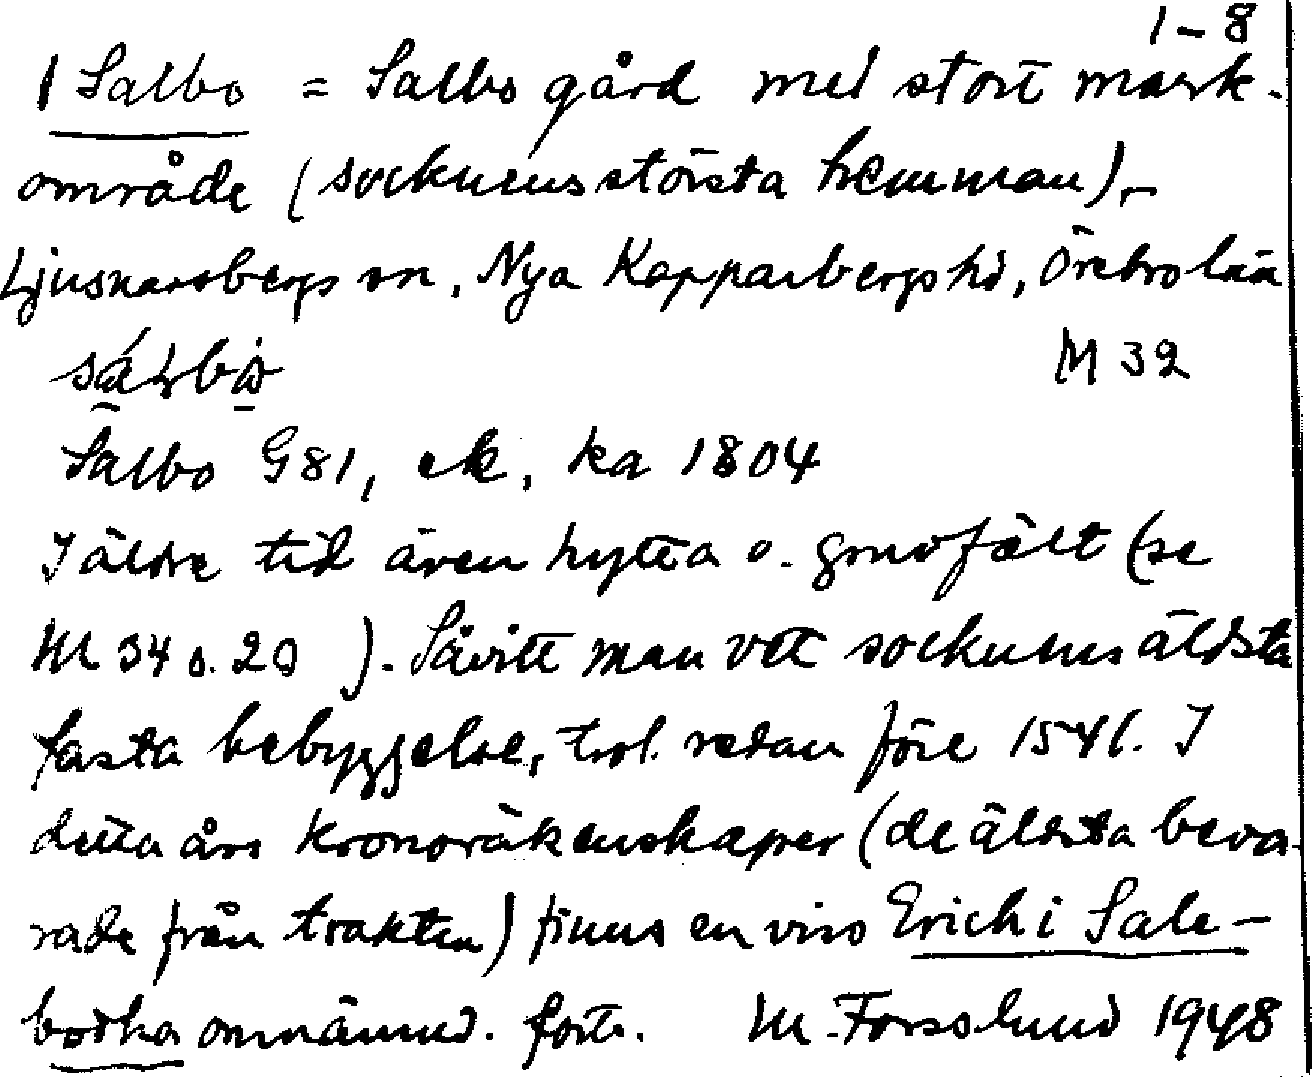 1-8
1 Salbo = Salbo gård med stort mark-
område (socknens största hemman),
Ljusnarsbergs sn, Nya Kopparbergs hd, Örebro län
M 32
Salbo G81, ek, ka 1804
I äldre tid även hytta o. gruvfält (se
M 34 o. 20 ). Såvitt man vet socknens äldsta
fasta bebyggelse, trol. redan före 1541. I
detta års kronoräkenskaper (de äldsta beva-
rade från trakten) finns en viss Erich i Sale-
bodha omnämnd. forts. M. Forsslund 1948